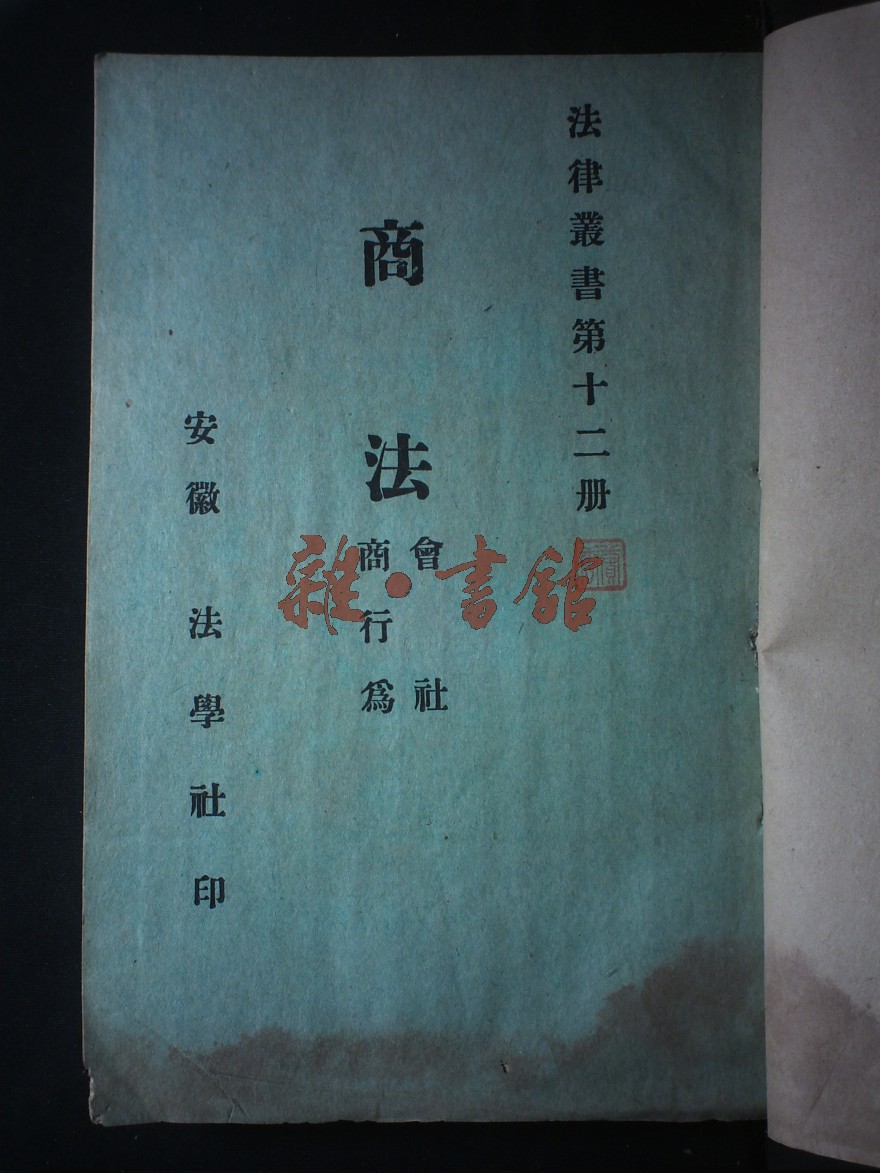 法律叢書第十二册
商法
會社
商行為
安徽法學社印
雜·書館